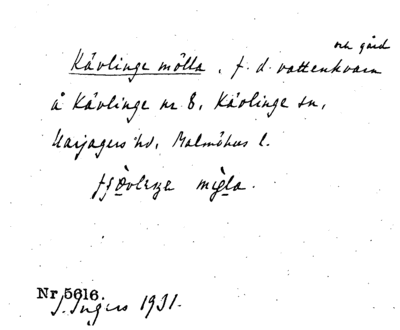 och gård
Kävlinge mölla, f. d. vattenkvarn
å Kävlinge nr 8, Kävlinge sn,
Harjagers hd, Malmöhus l.
Nr 5616.
I. Ingers 1931.